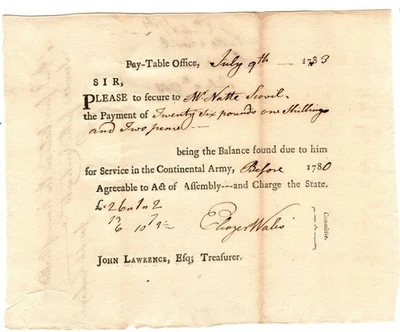 Pay-Table Office, July 9th — 1783
SIR,
PLEASE to secure to Mr Natte Scovil
the Payment of Twenty Six pounds one Shillings
and Two pence —
being the Balance found due to him
for Service in the Continental Army, Before 1780
Agreeable to Act of Assembly---and Charge the State.
£26 1 2
Eliazer Wales
Committee.
JOHN LAWRENCE, Esq; Treasurer.